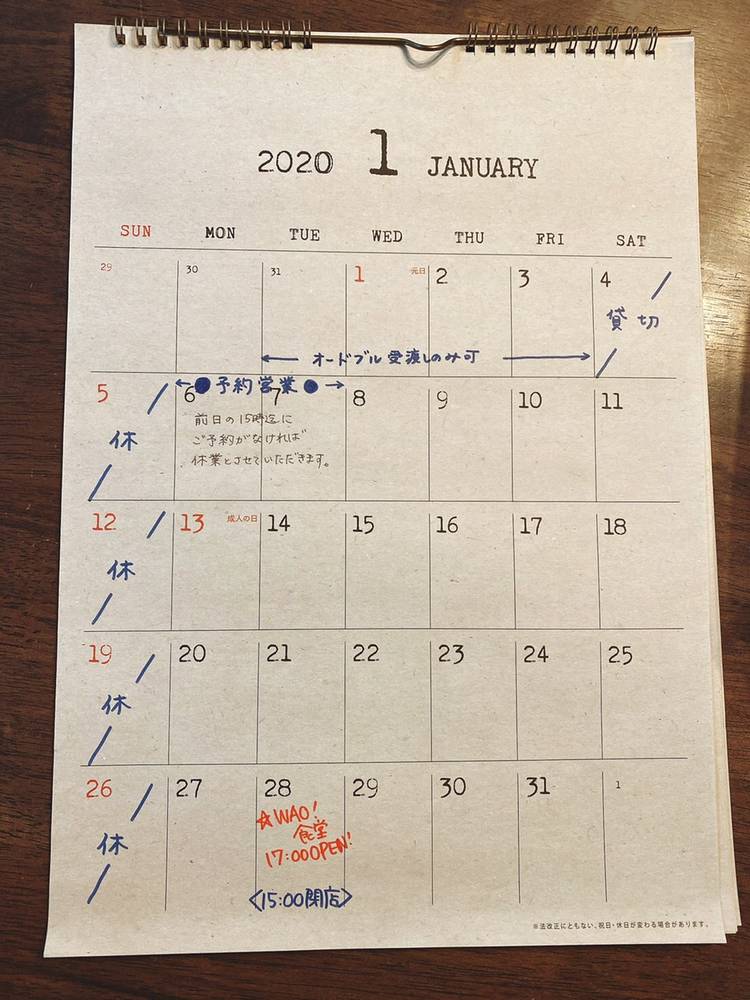 2020 1 JANUARY
SUN MON TUE WED THU FRI SAT
29 30 31 1 元日 2 3 4
貸切
オードブル受渡しのみ可
●予約営業●
5 6 7 8 9 10 11
休
前日の15時迄に
ご予約がなければ
休業とさせていただきます。
12 13 成人の日 14 15 16 17 18
休
19 20 21 22 23 24 25
休
26 27 28 29 30 31 1
休
☆WAO!
食堂
17:00OPEN!
<15:00閉店>
※法改正にともない、祝日・休日が変わる場合があります。